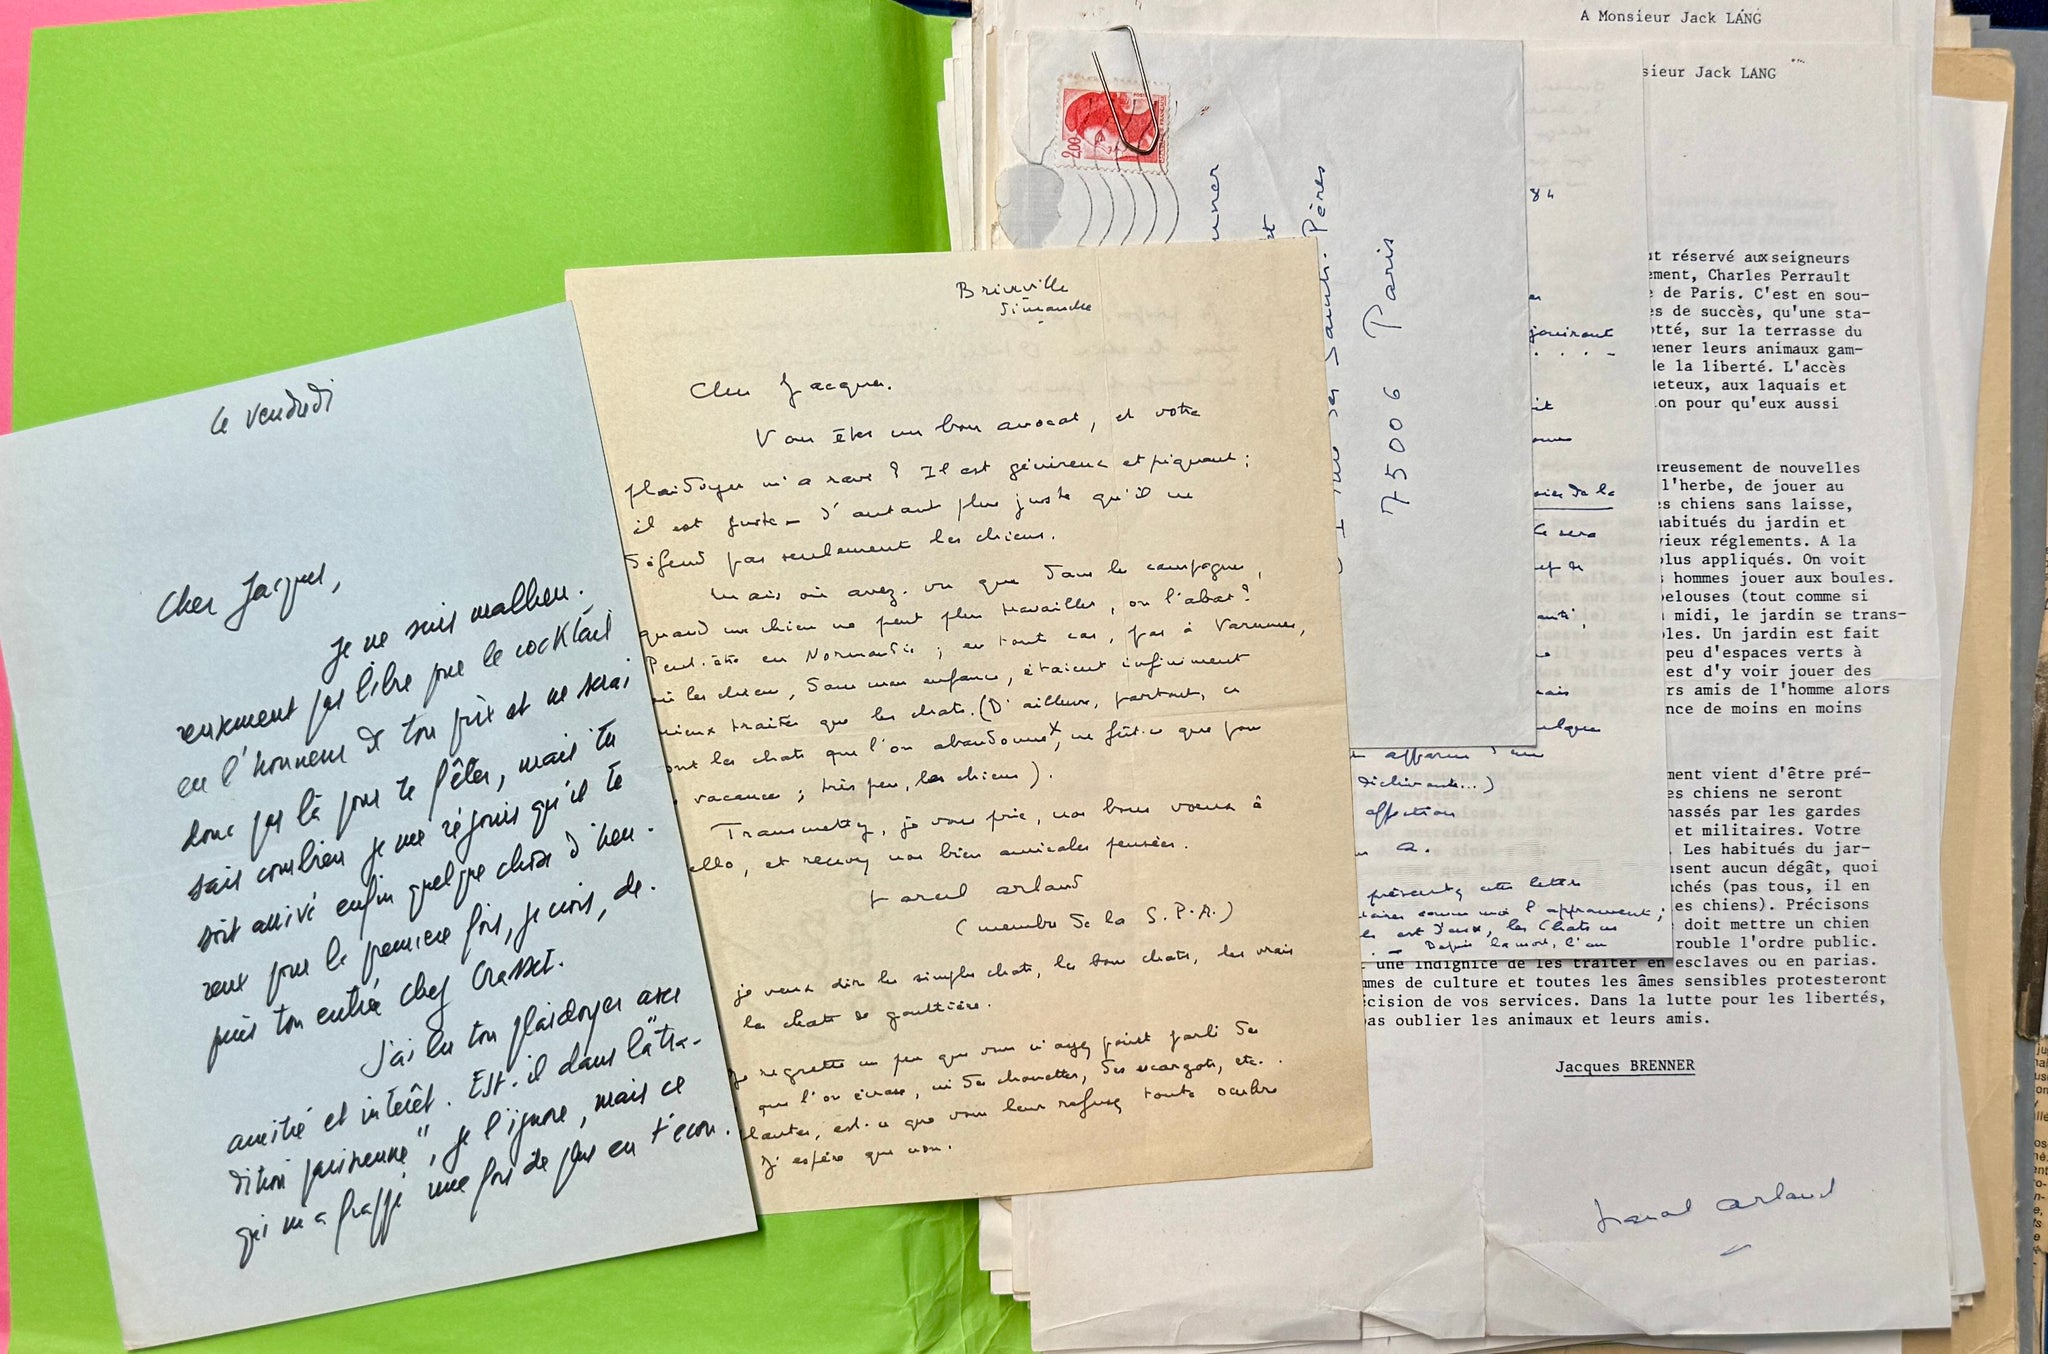 le vendredi
Cher Jacques,
Je ne suis malheu-
reusement pas libre pour le cocktail
en l'honneur de ton prix et ne serai
donc pas là pour te fêter, mais tu
sais combien je me réjouis qu'il te
soit arrivé enfin quelque chose d'heu-
reux pour la première fois, je crois, de-
puis ton entrée chez Grasset.
J'ai lu ton plaidoyer avec
amitié et intérêt. Est-il dans la "tra-
dition parisienne", je l'ignore, mais ce
qui m'a frappé une fois de plus en t'écou-
Brinville
dimanche
Cher Jacques.
Vous êtes un bon avocat, et votre
plaidoyer m'a ravi ? Il est généreux et piquant ;
il est juste - d'autant plus juste qu'il ne
défend pas seulement les chiens.
Mais où avez-vu que dans les campagnes,
quand un chien ne peut plus travailler, on l'abat ?
Peut-être en Normandie ; en tout cas, pas à Varennes,
où les chiens, dans mon enfance, étaient infiniment
mieux traités que les chats. (D'ailleurs, partout, ce
sont les chats que l'on abandonne x, ne fût-ce que pour
vacances ; très peu, les chiens).
Transmettez, je vous prie, nos bons voeux à
ello, et recevez nos bien amicales pensées.
Marcel Arland
(membre de la S.P.A.)
je veux dire les simples chats, les bons chats, les vrais
les chats de gouttière.
Je regrette un peu que vous n'ayez point parlé des
que l'on écrase, ni des chouettes, des escargots, etc..
plantes, est-ce que vous leur refusez toute
J'espère que non.
2,00
unner
et
Saints-Pères
75006 Paris
84
jouirout
it
sier de la
ce sera
ef de
mais
quelque
affection
A.
présentez cette lettre
comme moi l'apprennent ;
est d'eux, les Chats
- Depuis la mort, l'an
A Monsieur Jack LANG
sieur Jack LANG
ut réservé aux seigneurs
ement, Charles Perrault
e de Paris. C'est en sou-
es de succès, qu'une sta-
otté, sur la terrasse du
mener leurs animaux gam-
de la liberté. L'accès
ueteux, aux laquais et
ion pour qu'eux aussi
ureusement de nouvelles
l'herbe, de jouer au
es chiens sans laisse,
habitués du jardin et
vieux réglements. A la
plus appliqués. On voit
s hommes jouer aux boules.
pelouses (tout comme si
midi, le jardin se trans-
bles. Un jardin est fait
peu d'espaces verts à
est d'y voir jouer des
rs amis de l'homme alors
nce de moins en moins
ment vient d'être pré-
es chiens ne seront
hassés par les gardes
et militaires. Votre
. Les habitués du jar-
usent aucun dégât, quoi
uchés (pas tous, il en
es chiens). Précisons
doit mettre un chien
rouble l'ordre public.
une indignité de les traiter en esclaves ou en parias.
mmes de culture et toutes les âmes sensibles protesteront
écision de vos services. Dans la lutte pour les libertés,
pas oublier les animaux et leurs amis.
Jacques BRENNER
Marcel Arland